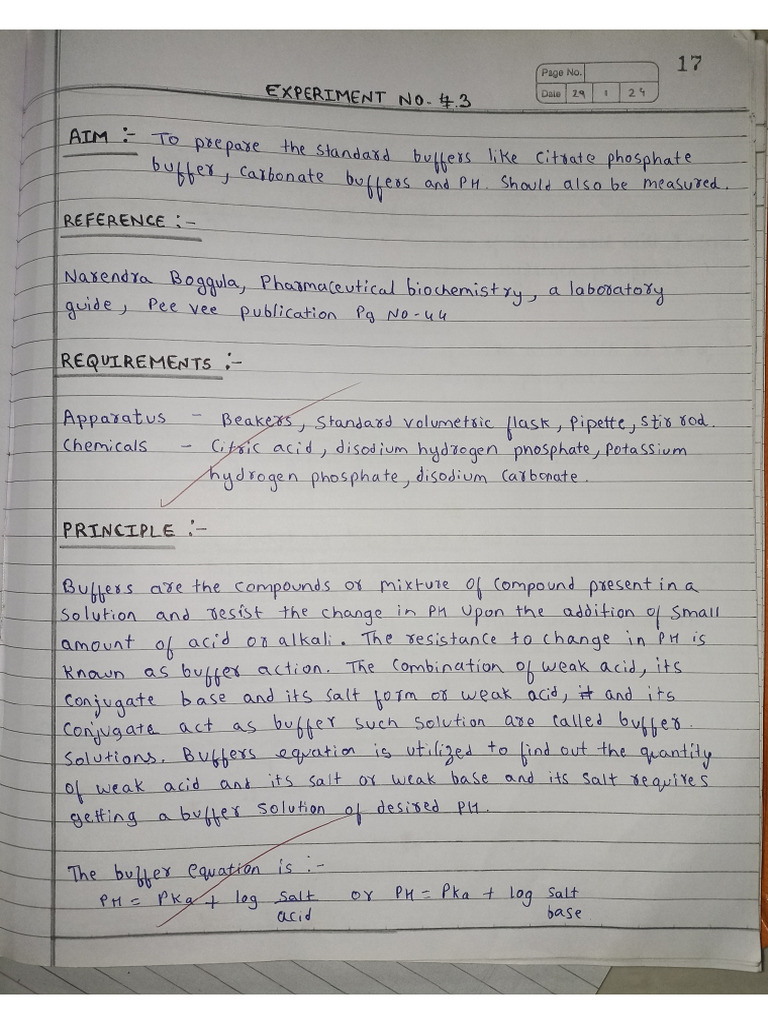 17
Page No.
Date 29 1 24
EXPERIMENT NO- 3
AIM :- To prepare the standard buffers like Citrate phosphate
buffer, Carbonate buffers and PH. Should also be measured.
REFERENCE :-
Narendra Boggula, Pharmaceutical biochemistry, a laboratory
guide, Pee vee publication Pg NO-44
REQUIREMENTS :-
Apparatus - Beakers, Standard volumetric flask, Pipette, Stir rod.
Chemicals - Citric acid, disodium hydrogen phosphate, Potassium
hydrogen phosphate, disodium Carbonate.
PRINCIPLE :-
Buffers are the compounds or mixture of Compound present in a
solution and resist the change in PH upon the addition of small
amount of acid or alkali. The resistance to change in PH is
known as buffer action. The Combination of weak acid, its
Conjugate base and its salt form or weak acid, it and its
Conjugate act as buffer such solution are called buffer.
Solutions. Buffers equation is utilized to find out the quantity
of weak acid and its salt or weak base and its salt requires
getting a buffer solution of desired PH.
The buffer equation is :-
PH = PKa + log Salt or PH = Pka + log Salt
acid base